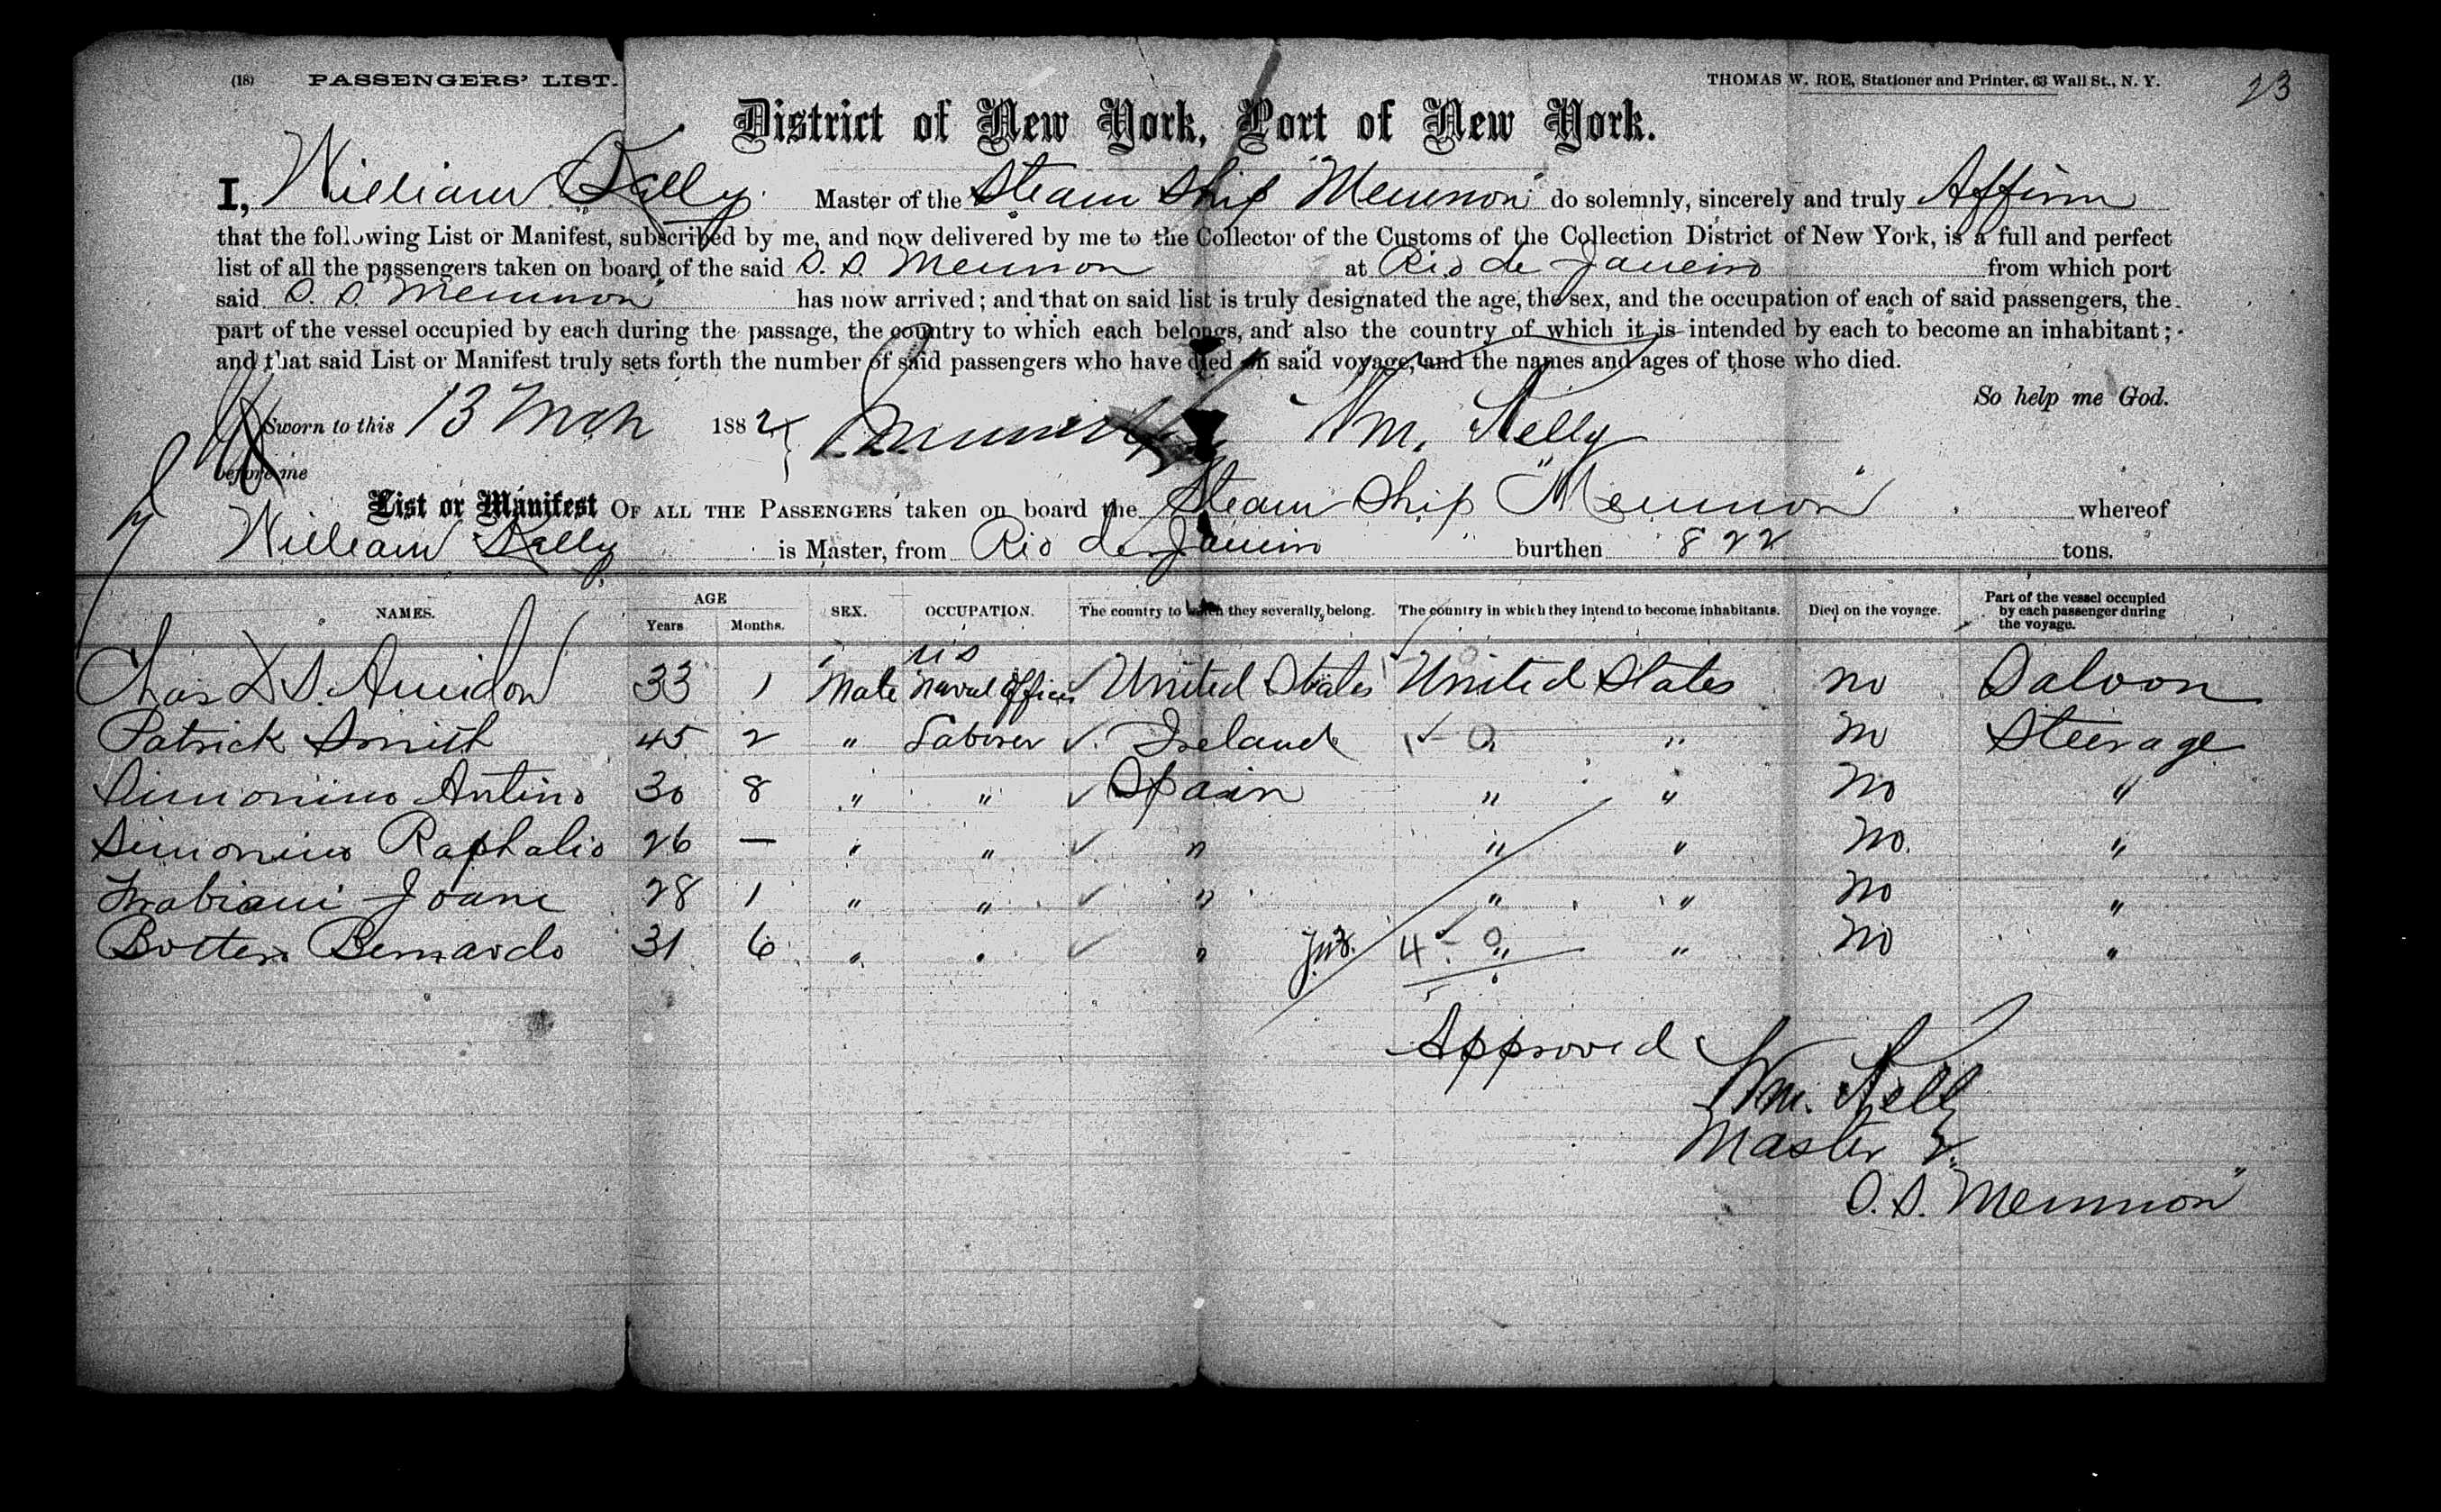 (18) PASSENGERS' LIST. THOMAS W. ROE, Stationer and Printer, 63 Wall St., N. Y. 23
District of New York, Port of New York.
I, William Kelly Master of the Steam Ship "Memnon" do solemnly, sincerely and truly Affirm
that the following List or Manifest, subscribed by me, and now delivered by me to the Collector of the Customs of the Collection District of New York, is a full and perfect
list of all the passengers taken on board of the said S. S. Memnon at Rio de Janeiro from which port
said S. S. "Memnon" has now arrived; and that on said list is truly designated the age, the sex, and the occupation of each of said passengers, the
part of the vessel occupied by each during the passage, the country to which each belongs, and also the country of which it is intended by each to become an inhabitant;
and that said List or Manifest truly sets forth the number of said passengers who have died on said voyage, and the names and ages of those who died.
So help me God.
Sworn to this 13 Mch 1882 Wm. Kelly
before me
List or Manifest OF ALL THE PASSENGERS taken on board the Steam Ship "Memnon" whereof
William Kelly is Master, from Rio de Janeiro burthen 822 tons.
NAMES. AGE Years Months. SEX. OCCUPATION. The country to which they severally belong. The country in which they intend to become inhabitants. Died on the voyage. Part of the vessel occupied by each passenger during the voyage.
Chas S. Amidon 33 1 Male US Naval Officer United States United States no Saloon
Patrick Smith 45 2 " Laborer Ireland " " no Steerage
Simonino Antino 30 8 " " Spain " " No "
Simonino Raphalio 26 — " " " " " No. "
Joane 28 1 " " " " " No "
Bernardo 31 6 " " " 4 " " No "
Approved
Wm. Kelly
Master
S. S. "Memnon"